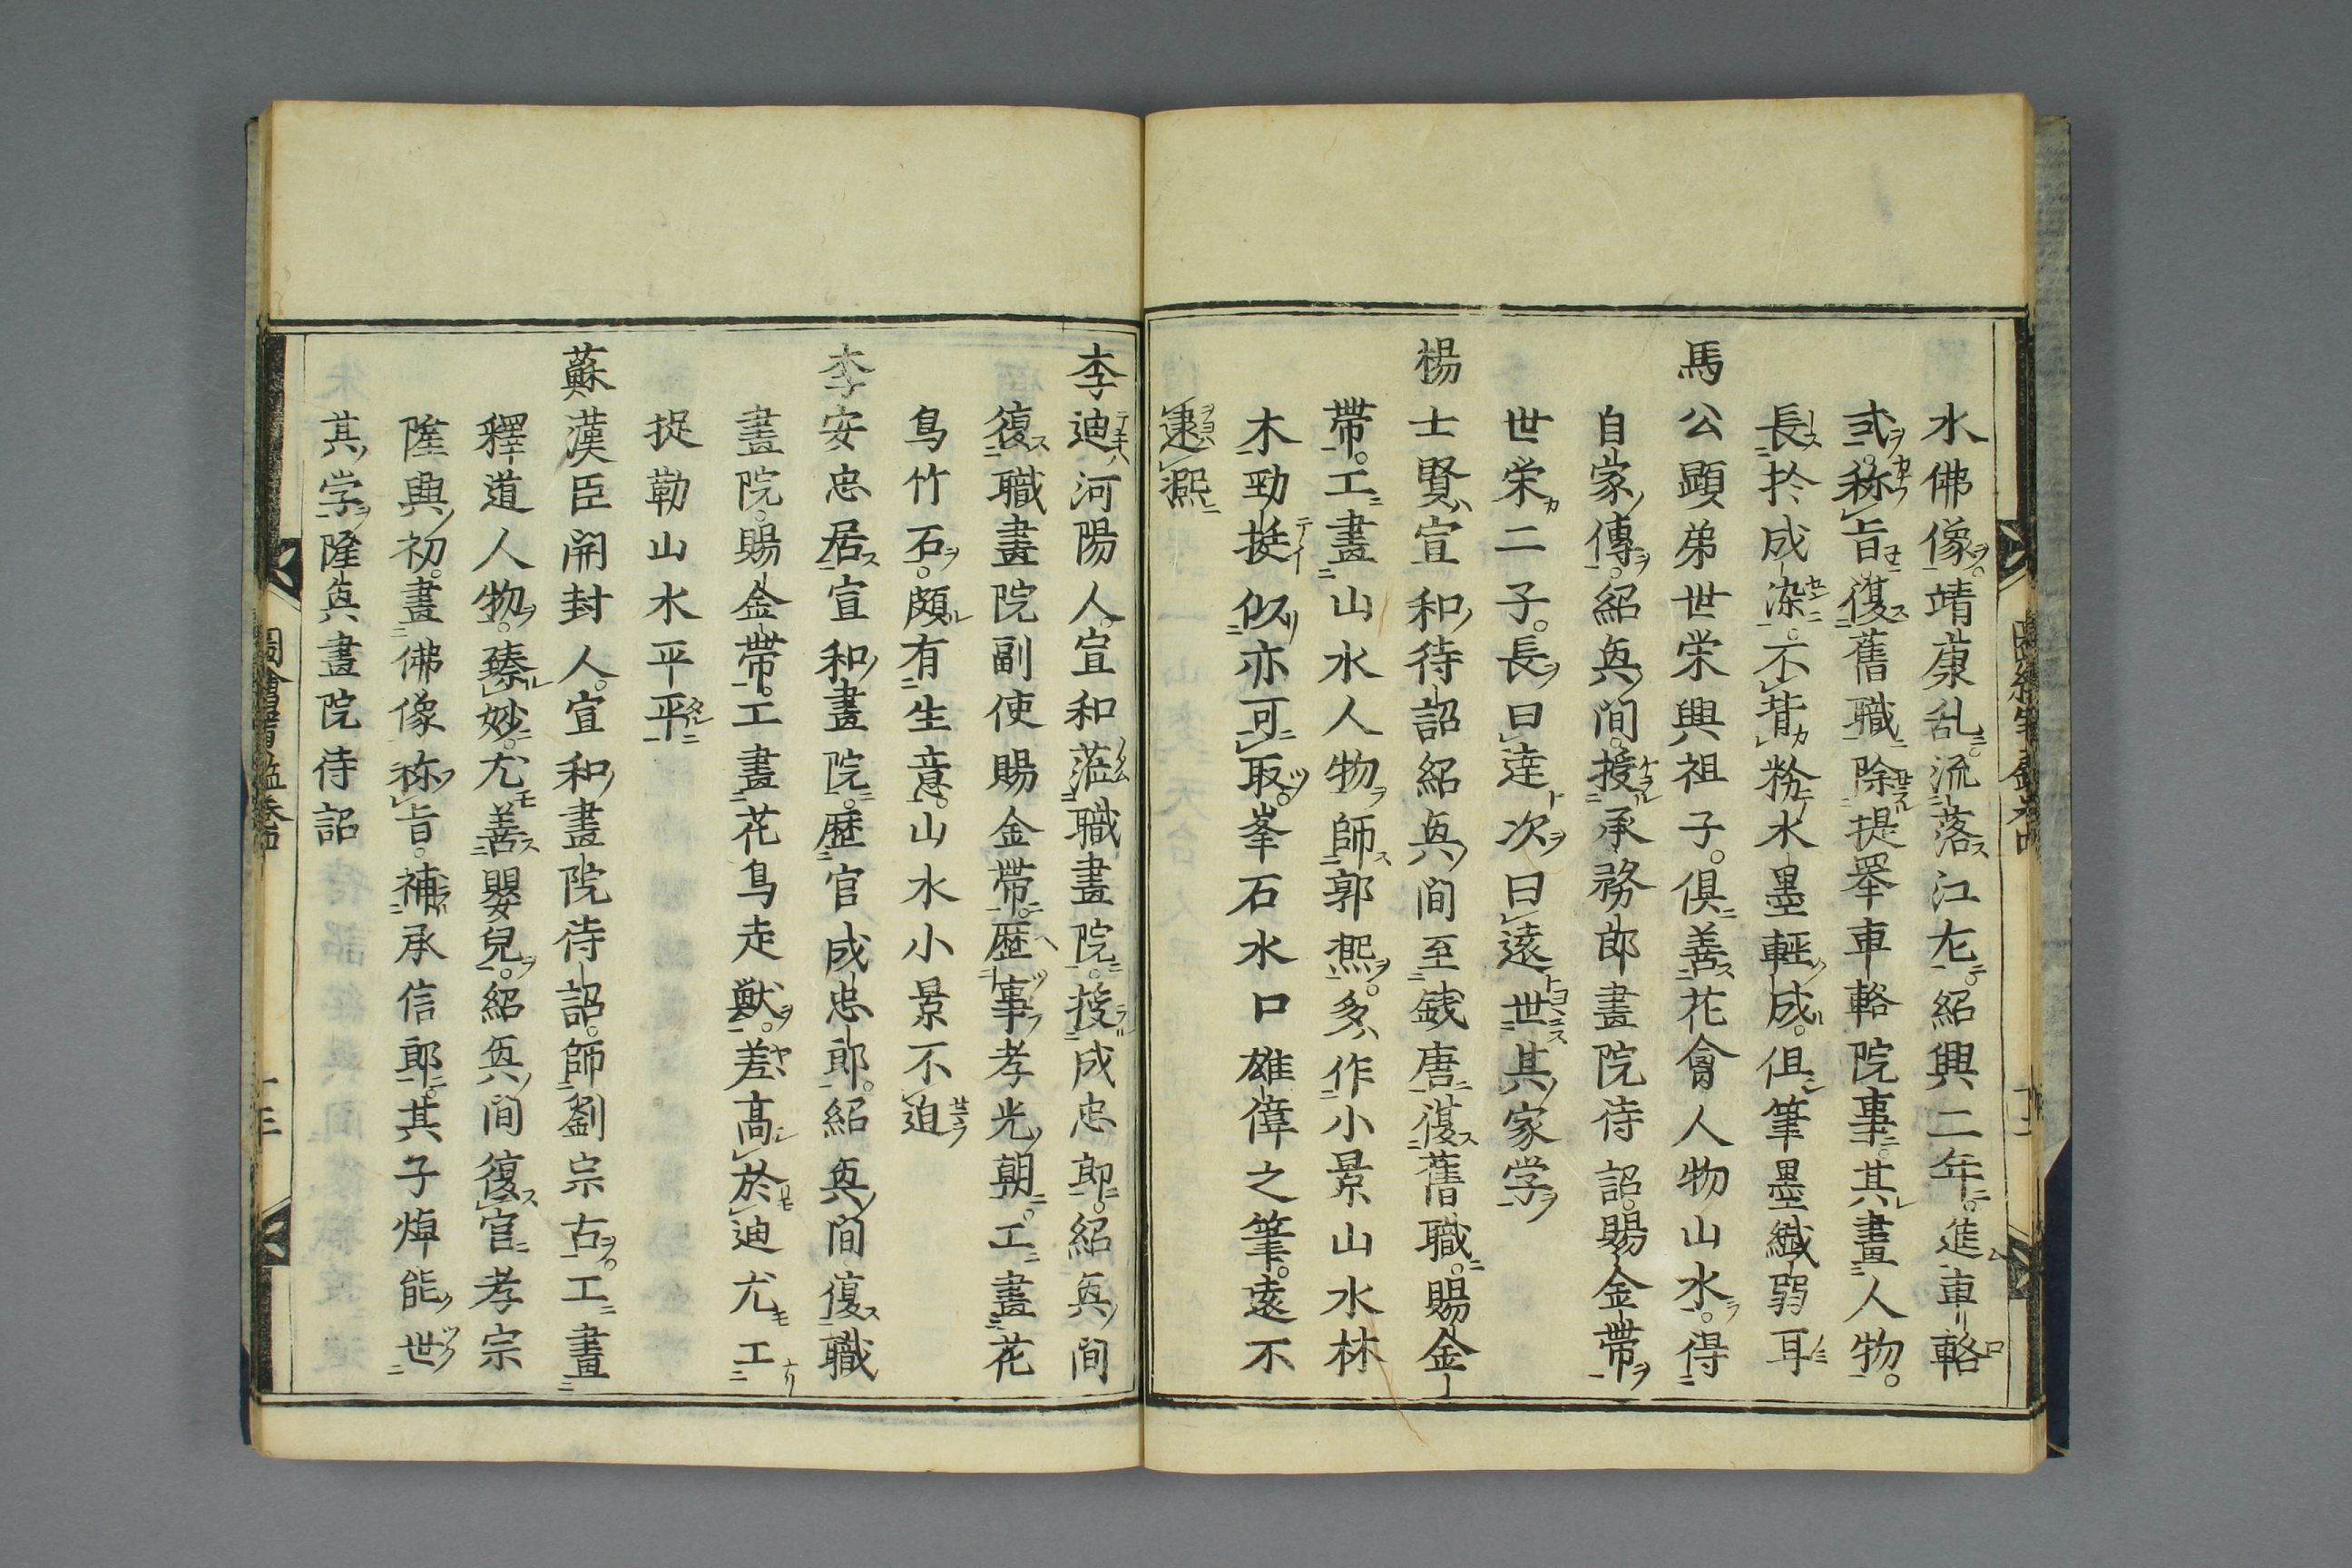 水佛像靖康乱流落江左紹興二年進車輅
式称旨復舊職除提舉車輅院事其畫人物
長於成染不背粉水墨輕成但筆墨纎弱耳
馬公顕弟世栄興祖子俱善花禽人物山水得
自家傳紹興間授承務郎畫院待詔賜金帶
世栄二子長曰逵次曰遠世其家学
楊士賢宣和待詔紹興間至錢唐復舊職賜金
帶工畫山水人物師郭熈多作小景山水林
木勁挺似亦可取峯石水口雄偉之筆遠不
逮熈
李迪河陽人宣和蒞職畫院授成忠郎紹興間
復職畫院副使賜金帶歴事孝光朝工畫花
鳥竹石頗有生意山水小景不迫
李安忠居宣和畫院歷官成忠郎紹興間復職
畫院賜金帶工畫花鳥走獣差高於迪尤工
捉勒山水平平
蘇漢臣開封人宣和畫院待詔師劉宗古工畫
釋道人物臻妙尤善嬰兒紹興間復官孝宗
隆興初畫佛像称旨補承信郎其子焯能世
其学隆興畫院待詔